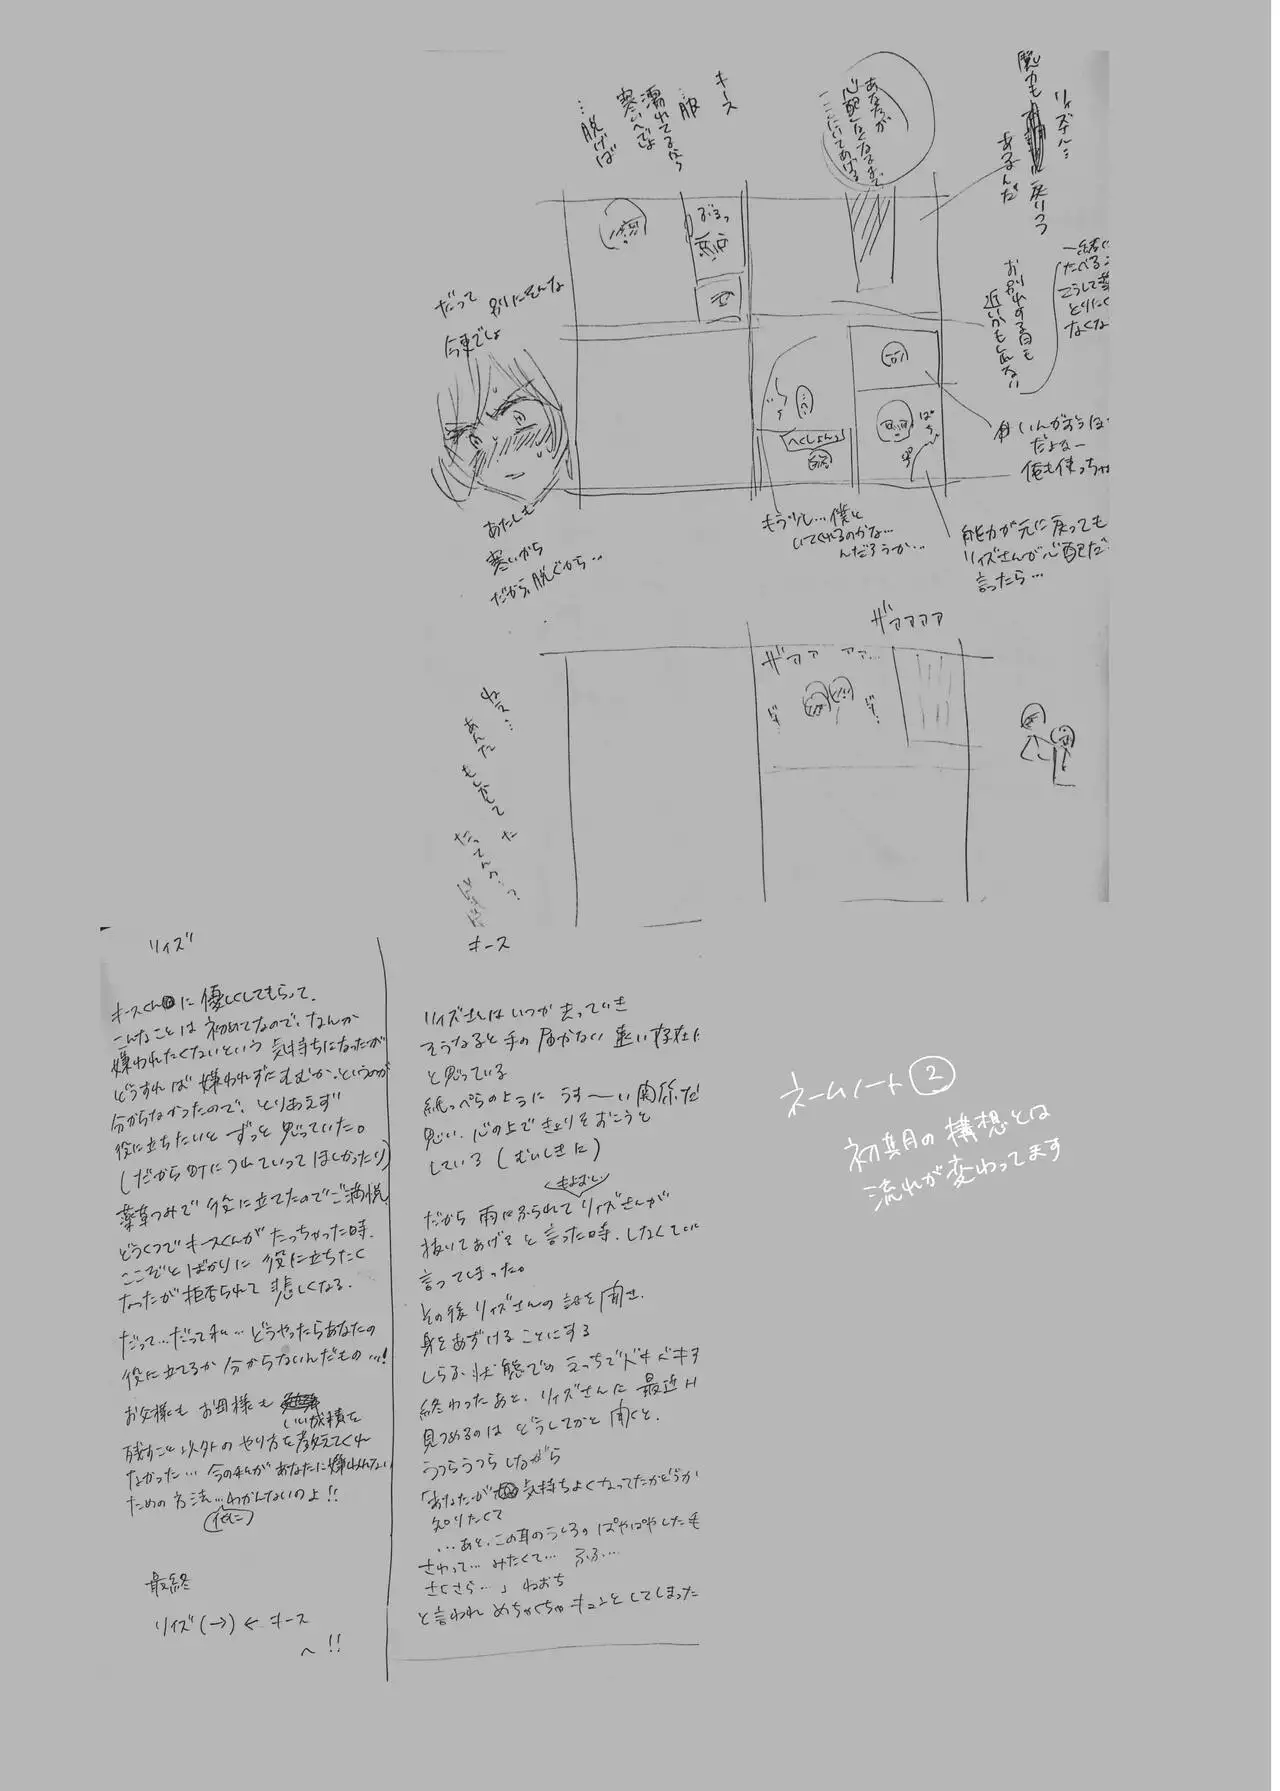 リィズル…
魔力も
戻りつつ
あるんだ
あなたが
心配なくなるまで
ここにいてあげる
キース
…服
濡れてるから
寒いでしょ
…脱げば
ぶるっ
一緒に
たべる
こうして薬
とりにく
なくな
お別れする日も
近いかもしれない
別にそんな
だって
今更でしょ
いんがおうほ
だよな…
俺も使っちゃ
ぱち
へくしょんっ
もう少し…僕と
いてくれるのかな…
んだろうか…
能力が元に戻っても
リィズさんが心配だ
言ったら…
あたしも
寒いから
だから、脱ぐから…
ザァァァァ
ザァァァ ァァ…
ねぇ…
あんた
もしかして
た
だってんの…?
リィズ
キースくんに優しくしてもらって、
こんなことは初めてなので、なんか
嫌われたくないという気持ちになったが
どうすれば嫌われずにすむか、というのが
分からなかったので、とりあえず
役に立ちたいとずっと思っていた。
(だから町につれていってほしかったり)
薬草つみで役に立てたのでご満悦
どうくつでキースくんがたっちゃった時、
ここぞとばかりに役に立ちたく
なったが拒否られて悲しくなる。
だって…だって私…どうやったらあなたの
役に立てるか分からないんだもの…!
お父様もお母様も
いい成績を
残すこと以外のやり方を教えてくれ
なかった…今の私があなたに嫌われない
ための方法…わかんないのよ!!
(他に)
最終
リィズ(→)←キース
へ!!
キース
リィズさんはいつか去っていき
そうなると手の届かない遠い存在に
と思っている
紙っぺらのようにうす〜い関係だ
思い、心の上できょりをおこうと
している(むいしきに)
だから雨にふられてリィズさんが
抜いてあげると言った時、しなくてい
言ってしまった。
その後リィズさんの話を聞き、
身をあずけることにする
しらふ状態でのえっちでドキドキす
終わったあと、リィズさんに最近H
見つめるのはどうしてかと聞くと、
うつらうつらしながら
「あなたが気持ちよくなってたかどうか
知りたくて
…あと、この耳のうしろのぱやぱやした毛
さわって…みたくて…ふふ…
さくさら…」ねおち
と言われめちゃくちゃキュンとしてしまった
ネームノート②
初期の構想とは
流れが変わってます